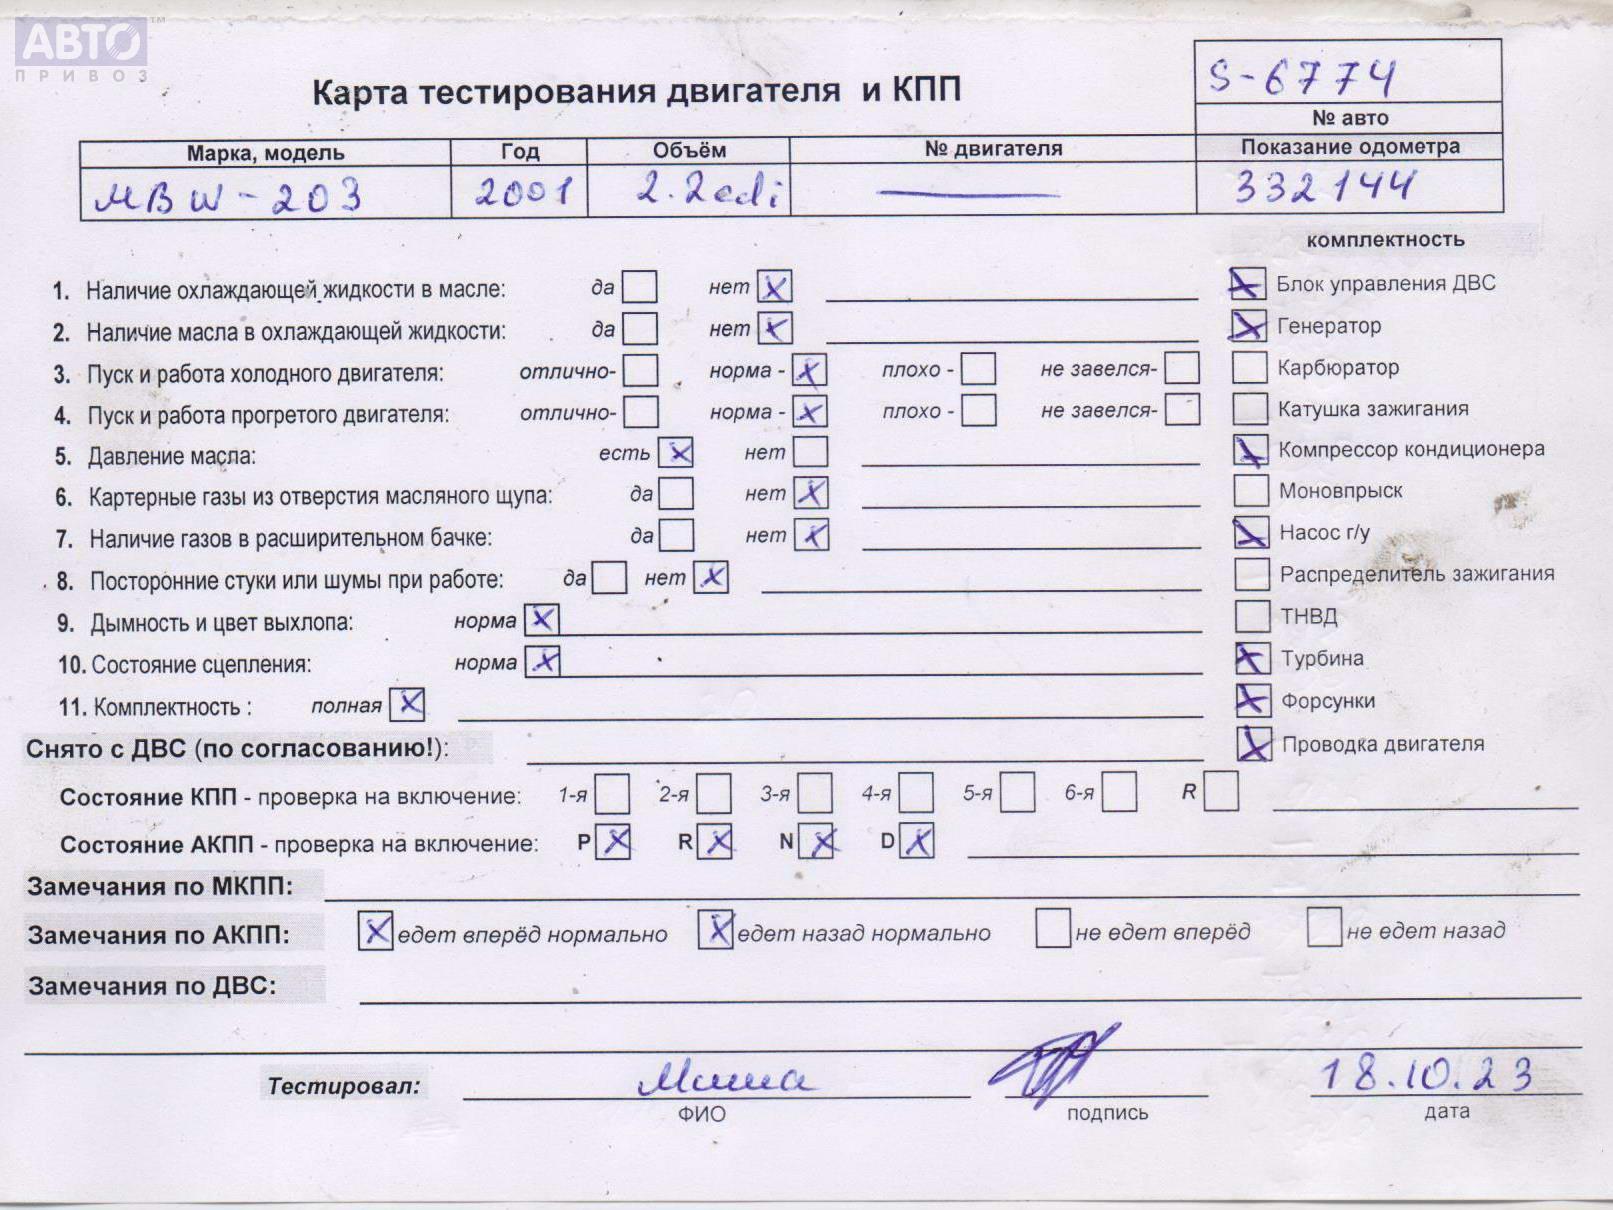 АВТО
ПРИВОЗ
Карта тестирования двигателя и КПП
S-6774
№ авто
Марка, модель Год Объём № двигателя Показание одометра
MBW-203 2001 2.2cdi — 332144
комплектность
1. Наличие охлаждающей жидкости в масле: да нет Блок управления ДВС
2. Наличие масла в охлаждающей жидкости: да нет Генератор
3. Пуск и работа холодного двигателя: отлично- норма - плохо - не завелся- Карбюратор
4. Пуск и работа прогретого двигателя: отлично- норма - плохо - не завелся- Катушка зажигания
5. Давление масла: есть нет Компрессор кондиционера
6. Картерные газы из отверстия масляного щупа: да нет Моновпрыск
7. Наличие газов в расширительном бачке: да нет Насос г/у
8. Посторонние стуки или шумы при работе: да нет Распределитель зажигания
9. Дымность и цвет выхлопа: норма ТНВД
10. Состояние сцепления: норма Турбина
11. Комплектность : полная Форсунки
Снято с ДВС (по согласованию!): Проводка двигателя
Состояние КПП - проверка на включение: 1-я 2-я 3-я 4-я 5-я 6-я R
Состояние АКПП - проверка на включение: P R N D
Замечания по МКПП:
Замечания по АКПП: едет вперёд нормально едет назад нормально не едет вперёд не едет назад
Замечания по ДВС:
Тестировал: Миша 18.10.23
ФИО подпись дата